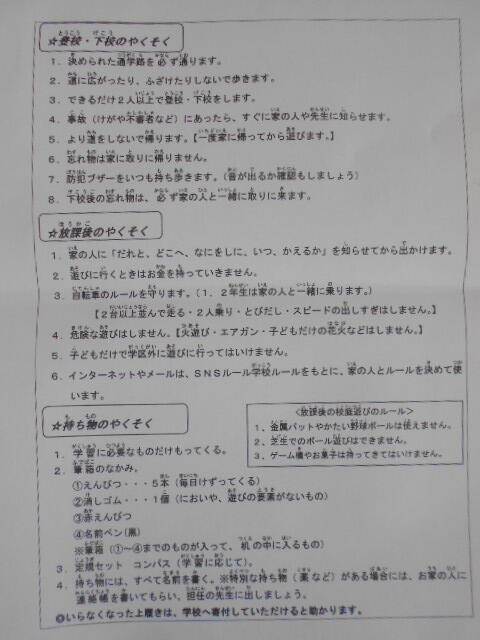 ☆登校・下校のやくそく
1．決められた通学路を必ず通ります。
2．道に広がったり、ふざけたりしないで歩きます。
3．できるだけ2人以上で登校・下校をします。
4．事故（けがや不審者など）にあったら、すぐに家の人や先生に知らせます。
5．より道をしないで帰ります。【一度家に帰ってから遊びます。】
6．忘れ物は家に取りに帰りません。
7．防犯ブザーをいつも持ち歩きます。（音が出るか確認もしましょう）
8．下校後の忘れ物は、必ず家の人と一緒に取りに来ます。
☆放課後のやくそく
1．家の人に「だれと、どこへ、なにをしに、いつ、かえるか」を知らせてから出かけます。
2．遊びに行くときはお金を持っていきません。
3．自転車のルールを守ります。（1．2年生は家の人と一緒に乗ります。）
【2台以上並んで走る・2人乗り・とびだし・スピードの出しすぎはしません。】
4．危険な遊びはしません。【火遊び・エアガン・子どもだけの花火などはしません。】
5．子どもだけで学区外に遊びに行ってはいけません。
6．インターネットやメールは、SNSルール学校ルールをもとに、家の人とルールを決めて使
います。
☆持ち物のやくそく
1．学習に必要なものだけもってくる。
2．筆箱のなかみ。
①えんぴつ・・・5本（毎日けずってくる）
②消しゴム・・・1個（においや、遊びの要素がないもの）
③赤えんぴつ
④名前ペン(黒)
※筆箱（①～④までのものが入って、机の中に入るもの）
3．定規セット　コンパス（学習に応じて）。
4．持ち物には、すべて名前を書く。※特別な持ち物（薬など）がある場合には、お家の人に
連絡帳を書いてもらい、担任の先生に出しましょう。
◎いらなくなった上履きは、学校へ寄付していただけると助かります。
＜放課後の校庭遊びのルール＞
1、金属バットやかたい野球ボールは使えません。
2、芝生でのボール遊びはできません。
3、ゲーム機やお菓子は持ってきてはいけません。